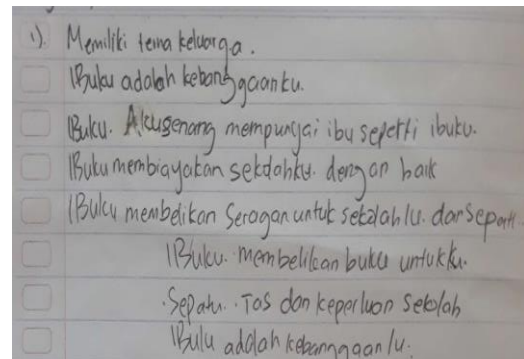 1). Memiliki tema keluarga.
IBuku adalah kebanggaanku.
IBuku. Aku senang mempunyai ibu seperti ibuku.
IBuku membiayakan sekolahku. dengan baik
IBuku membelikan Seragan untuk sekolahku. dan Sepatu.
IBuku. membelikan buku untukku.
.Sepatu. .Tas dan keperluan Sekolah
IBuku adalah kebanggaanku.